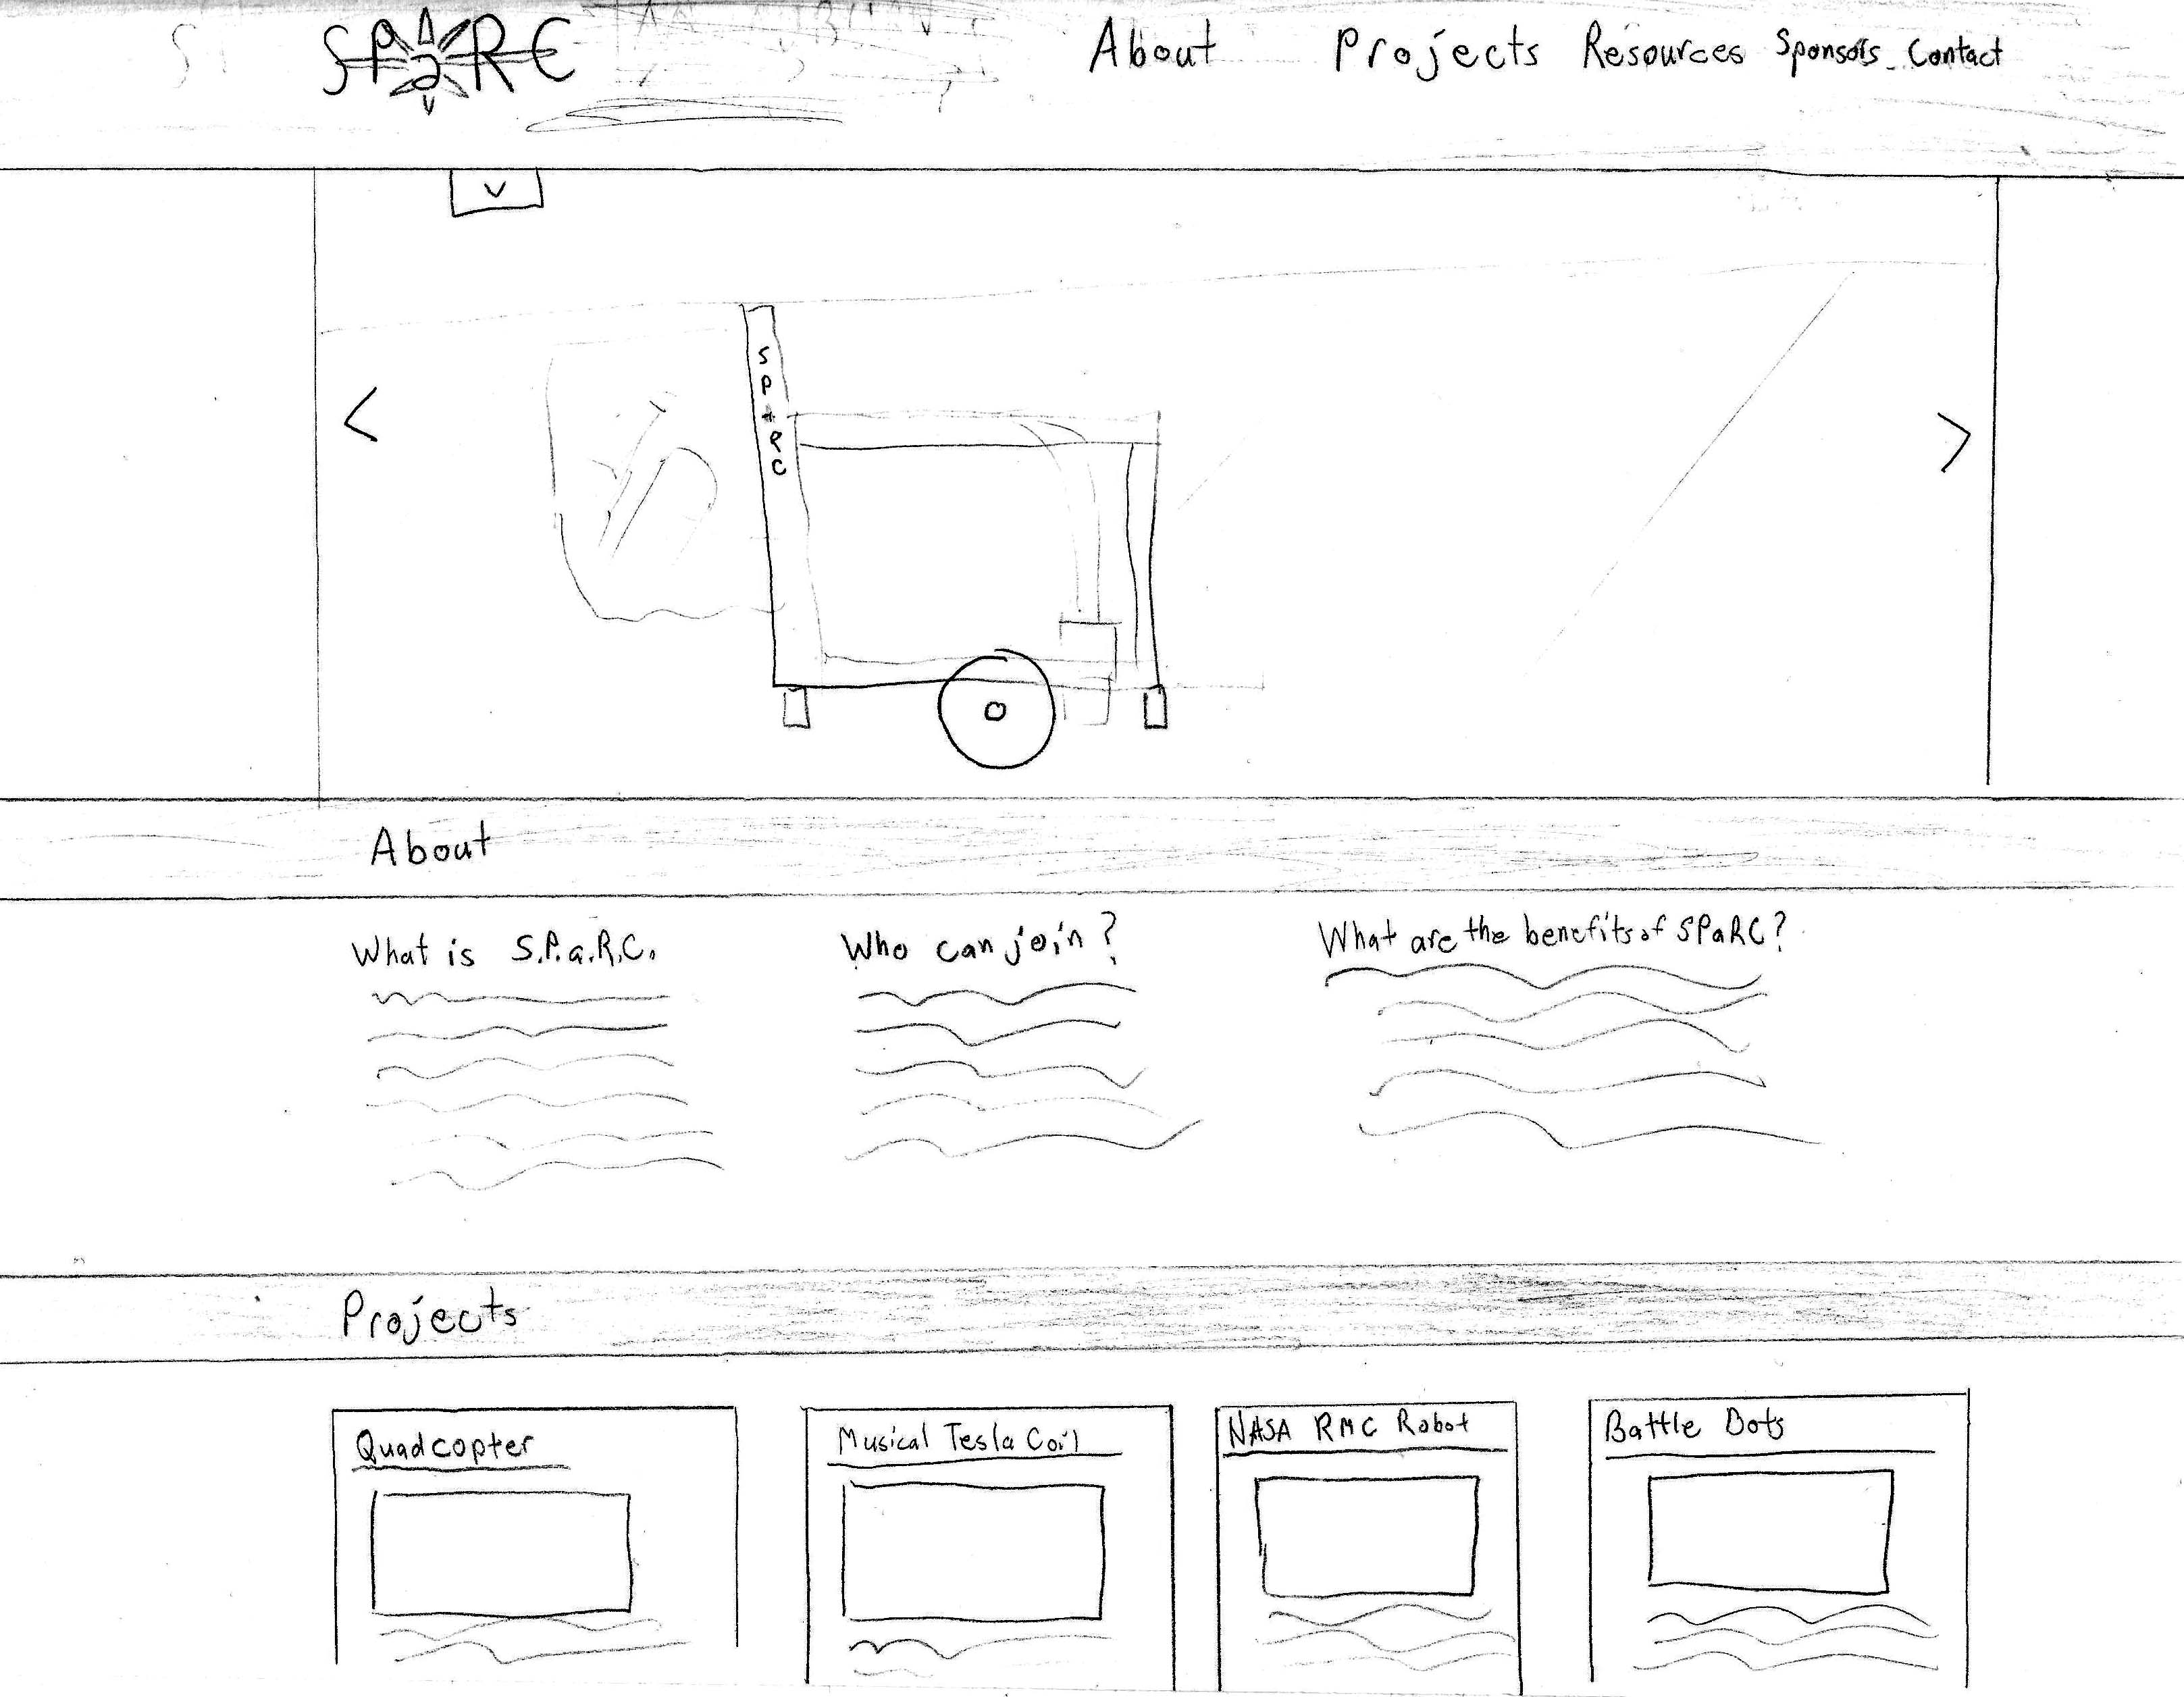 SPaRC
About Projects Resources Sponsors Contact
V
<
S
P
A
R
C
>
About
What is S.P.a.R.C.
Who can join?
What are the benefits of SPaRC?
Projects
Quadcopter
Musical Tesla Coil
NASA RMC Robot
Battle Bots